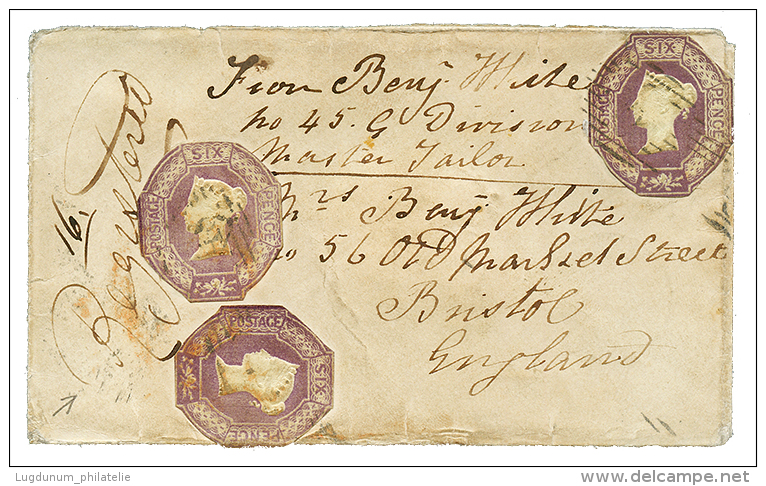 From Benj. White
no 45. G Division
Master Tailor
Mrs Benj White
no 56 Old Market Street
Bristol
England
Registered
16.
SIX
POSTAGE
PENCE
SIX
POSTAGE
PENCE
POSTAGE
SIX
PENCE
Lugdunum_philatelie
delcampe.net